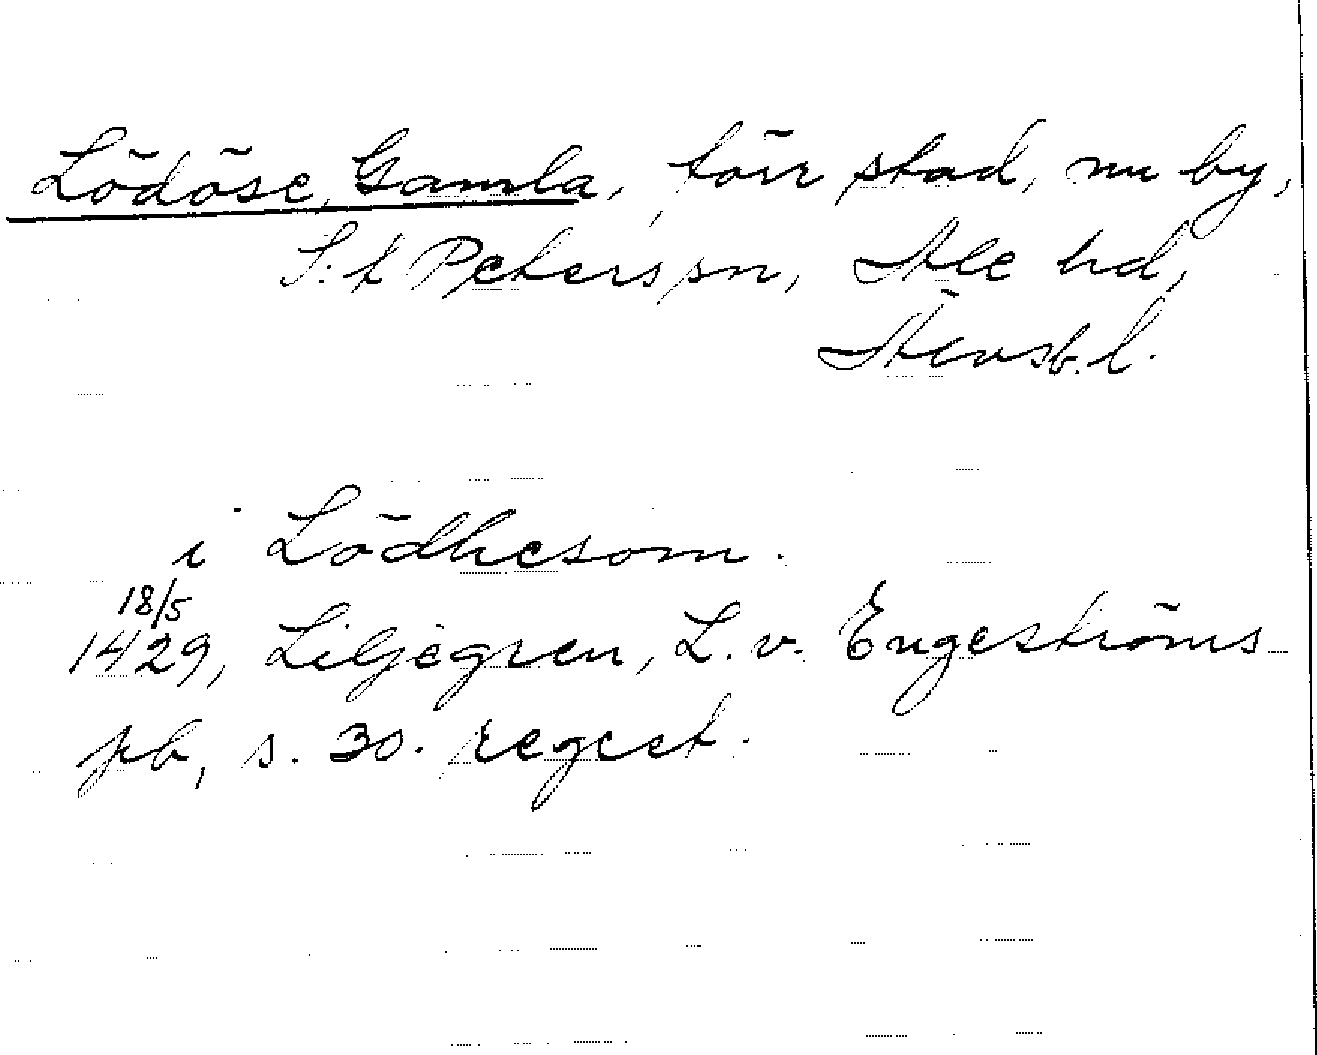 Lödöse, Gamla, förr stad, nu by,
S:t Peters sn, Ale hd,
Älvsb. l.
i Lödhesom.
18/5
1429, Liljegren, L. v. Engeströms
pb, s. 30. regest.